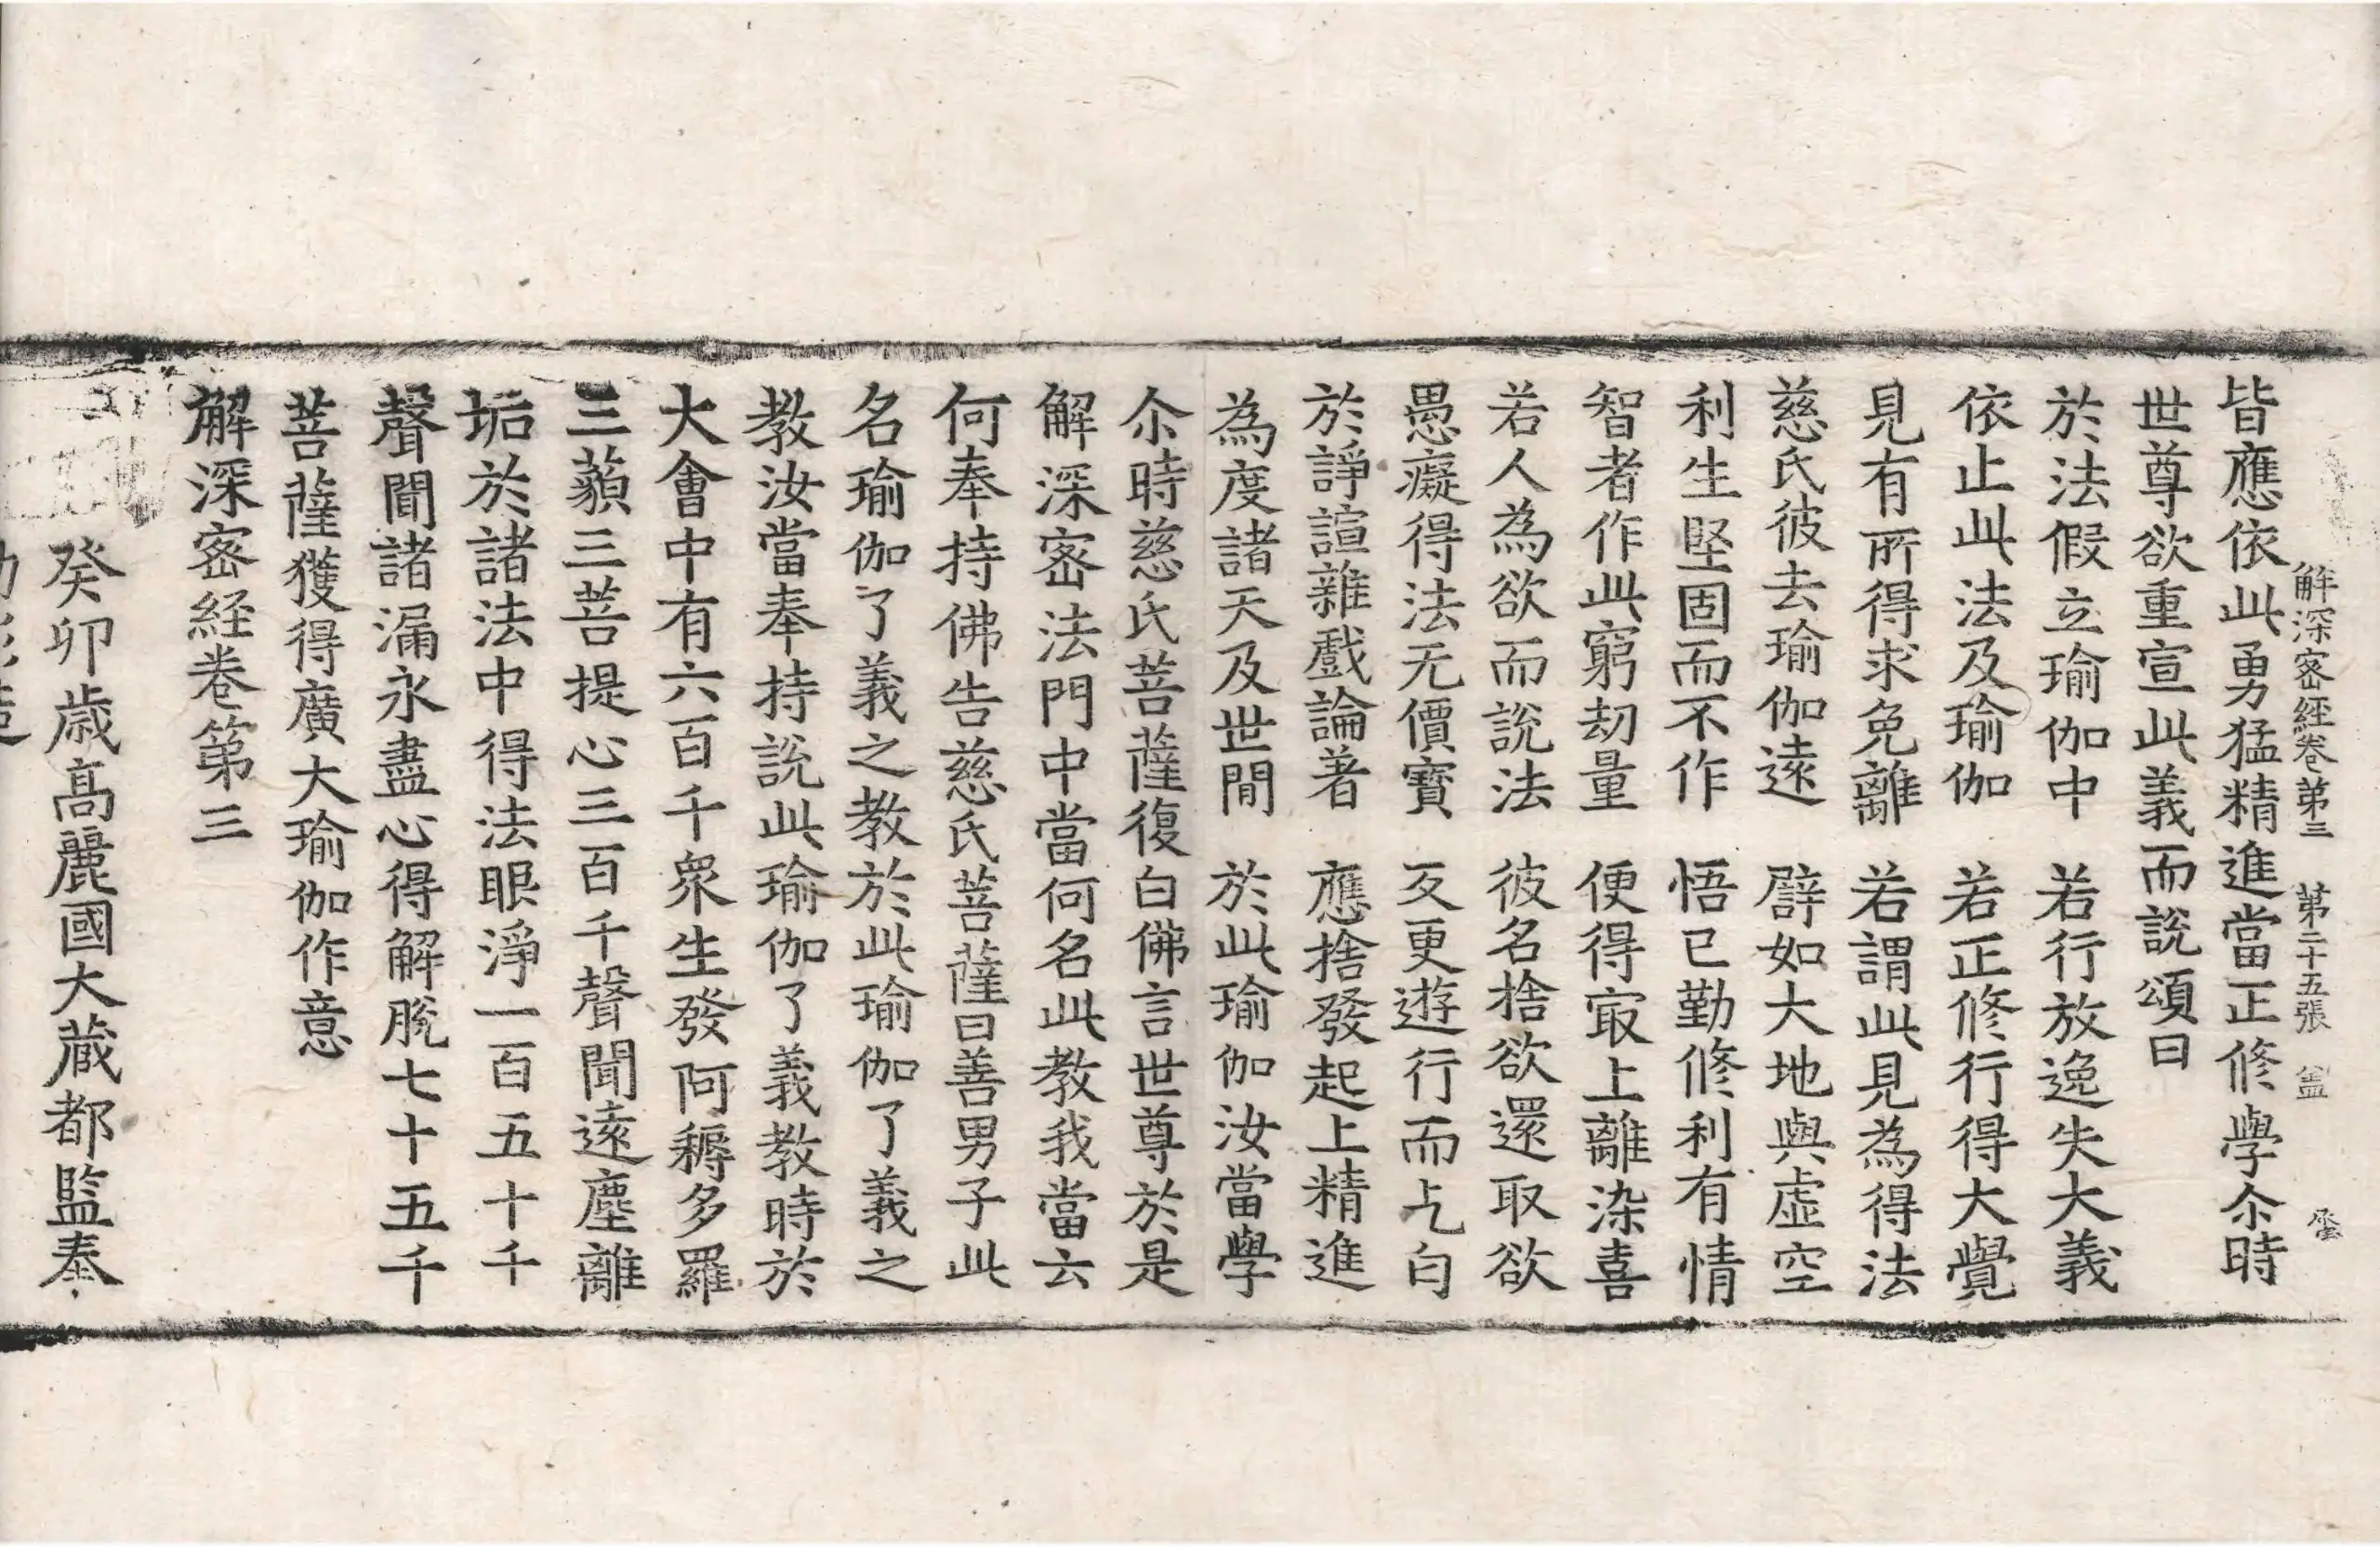 解深密経卷第三 第二十五張 盖
皆應依此勇猛精進當正修學尒時
世尊欲重宣此義而說頌曰
於法假立瑜伽中 若行放逸失大義
依止此法及瑜伽 若正修行得大覺
見有所得求免離 若謂此見為得法
慈氏彼去瑜伽遠 譬如大地與虛空
利生堅固而不作 悟已勤修利有情
智者作此窮劫量 便得㝡上離染喜
若人為欲而說法 彼名捨欲還取欲
愚癡得法无價寶 反更遊行而乞匄
於諍諠雜戲論著 應捨發起上精進
為度諸天及世間 於此瑜伽汝當學
尒時慈氏菩薩復白佛言世尊於是
解深密法門中當何名此教我當云
何奉持佛告慈氏菩薩曰善男子此
名瑜伽了義之教於此瑜伽了義之
教汝當奉持說此瑜伽了義教時於
大會中有六百千衆生發阿耨多羅
三藐三菩提心三百千聲聞遠塵離
垢於諸法中得法眼淨一百五十千
聲聞諸漏永盡心得解脫七十五千
菩薩獲得廣大瑜伽作意
解深密経卷第三
癸卯歲高麗國大藏都監奉